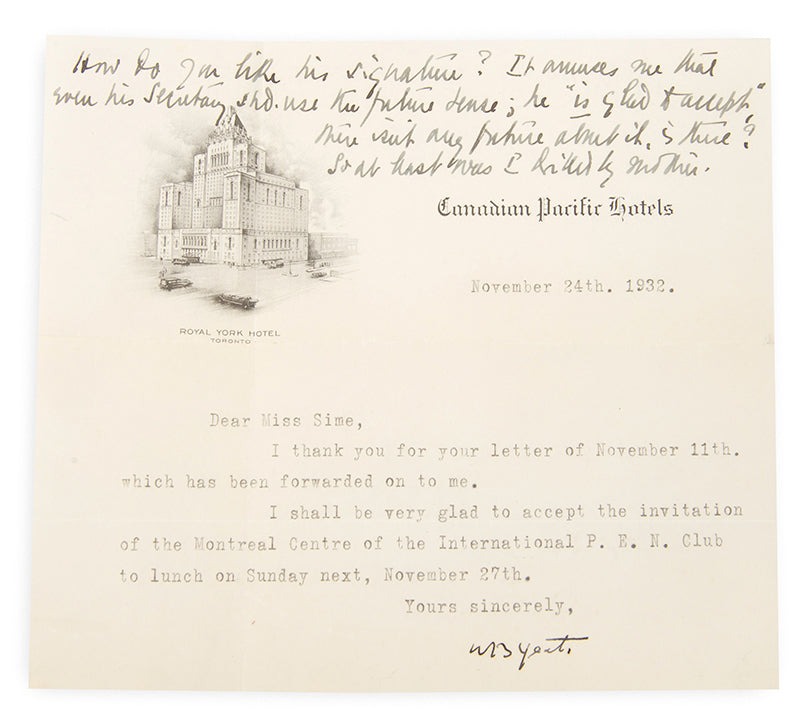 How do you like his signature? It amuses me that
even his Secretary shd. use the future tense; he "is glad to accept,"
there isn't any future about it, is there?
So at least was I drilled by mother.
Canadian Pacific Hotels
November 24th. 1932.
ROYAL YORK HOTEL
TORONTO
Dear Miss Sime,
I thank you for your letter of November 11th.
which has been forwarded on to me.
I shall be very glad to accept the invitation
of the Montreal Centre of the International P. E. N. Club
to lunch on Sunday next, November 27th.
Yours sincerely,
WB Yeats.